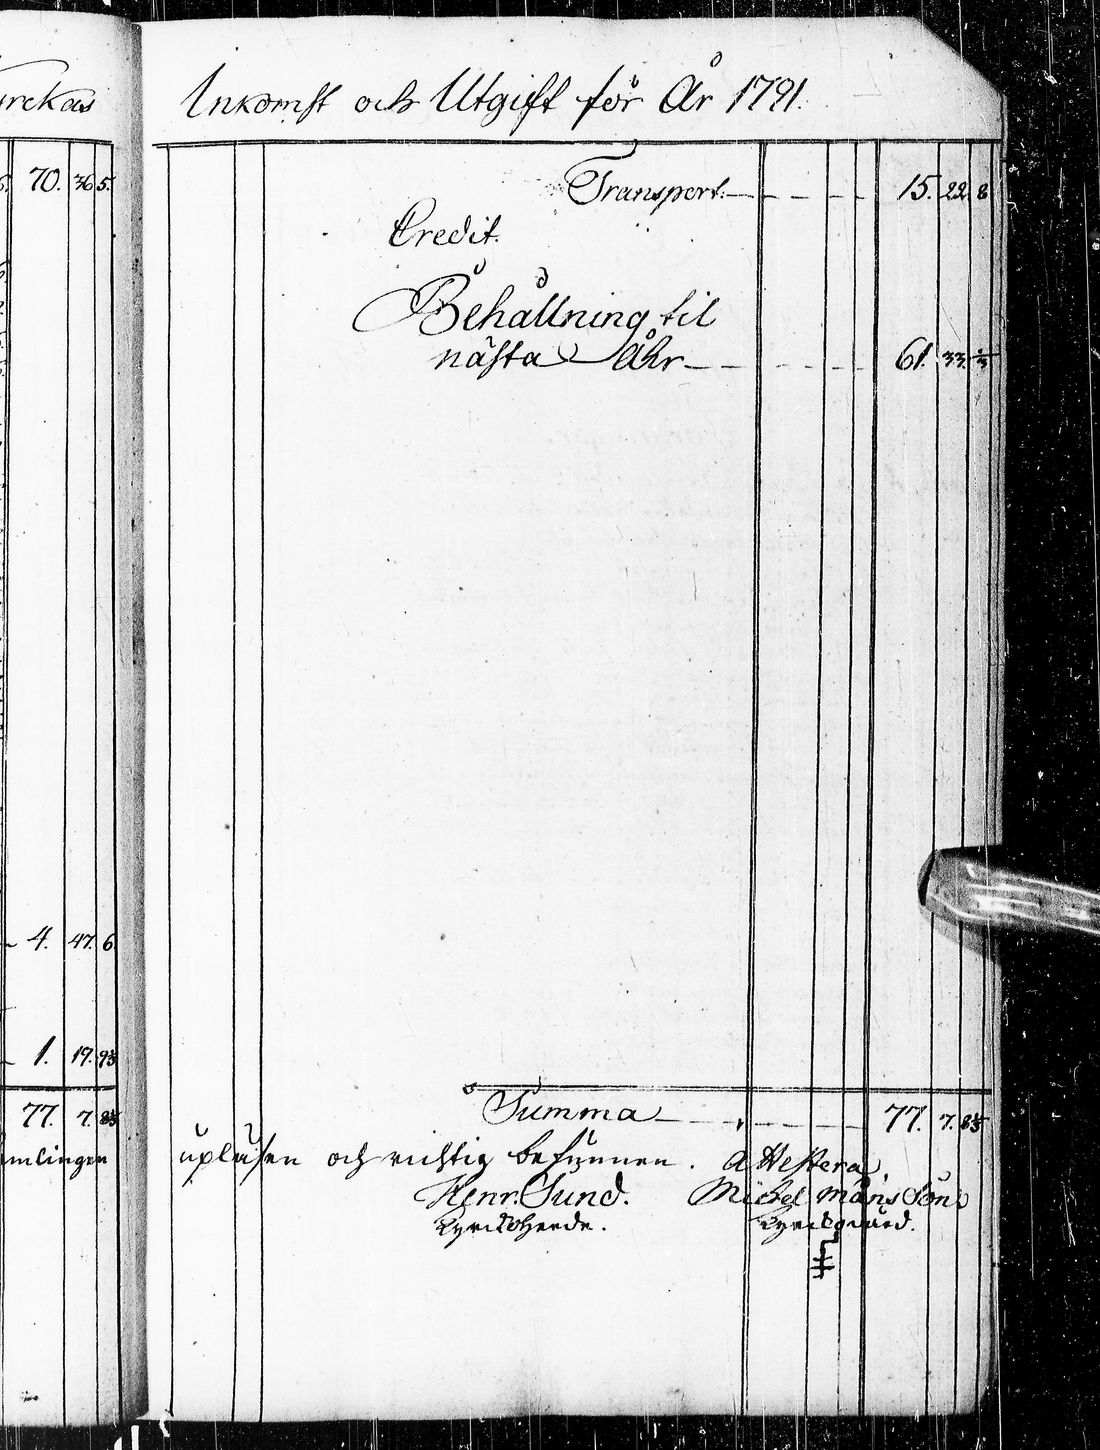 yrckas
70. 36 5.
4. 47. 6.
1. 19. 9⅓
77. 7. 8⅓
amlingen
Inkomst och Utgift för År 1791.
Transport. 15. 22. 8
Credit.
Behållning til
nästa Åhr 61. 33. ⅓
Summa 77. 7. 8⅓
upläsen och richtig befunnen. attestera
Henr. Sund. Michel Måns Son
Kyrckoherde. Kyrckovärd.